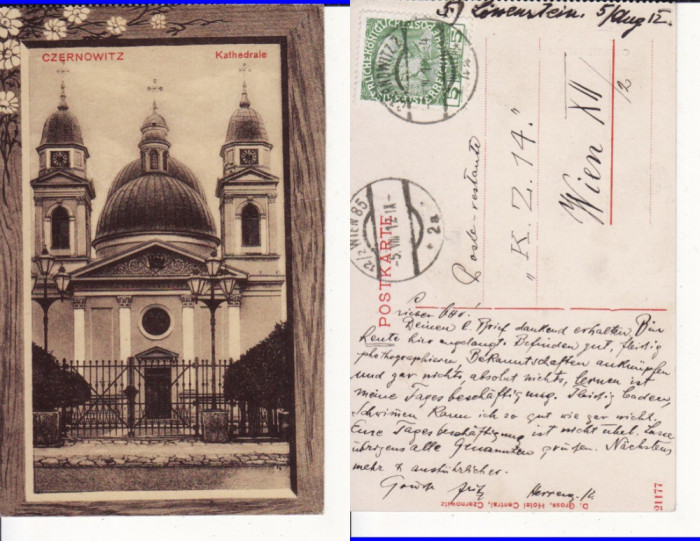 CZERNOWITZ Kathedrale
Löwenstein. 5/Aug 12.
5
CZERNOWITZ 2
WIEN 85
12/2
-5. VIII 12 IX-
* 2a *
POSTKARTE
Poste-restante
"K. Z. 14."
Wien XII/2
Lieber Otto!
Deinen l. Brief dankend erhalten. Bin
heute hier angelangt. Befinden gut, fleißig
photographieren, Bekanntschaften anknüpfen
und gar nichts, absolut nichts, lernen ist
meine Tagesbeschäftigung. Fleißig baden,
Schwim̄en kann ich so gut wie gar nicht.
Eure Tagesbeschäftigung ist nicht übel. Lasse
übrigens alle Genannten grüßen. Nächstens
mehr & ausführlicher.
Fritz
D. Gross, Hotel Central, Czernowitz
21177